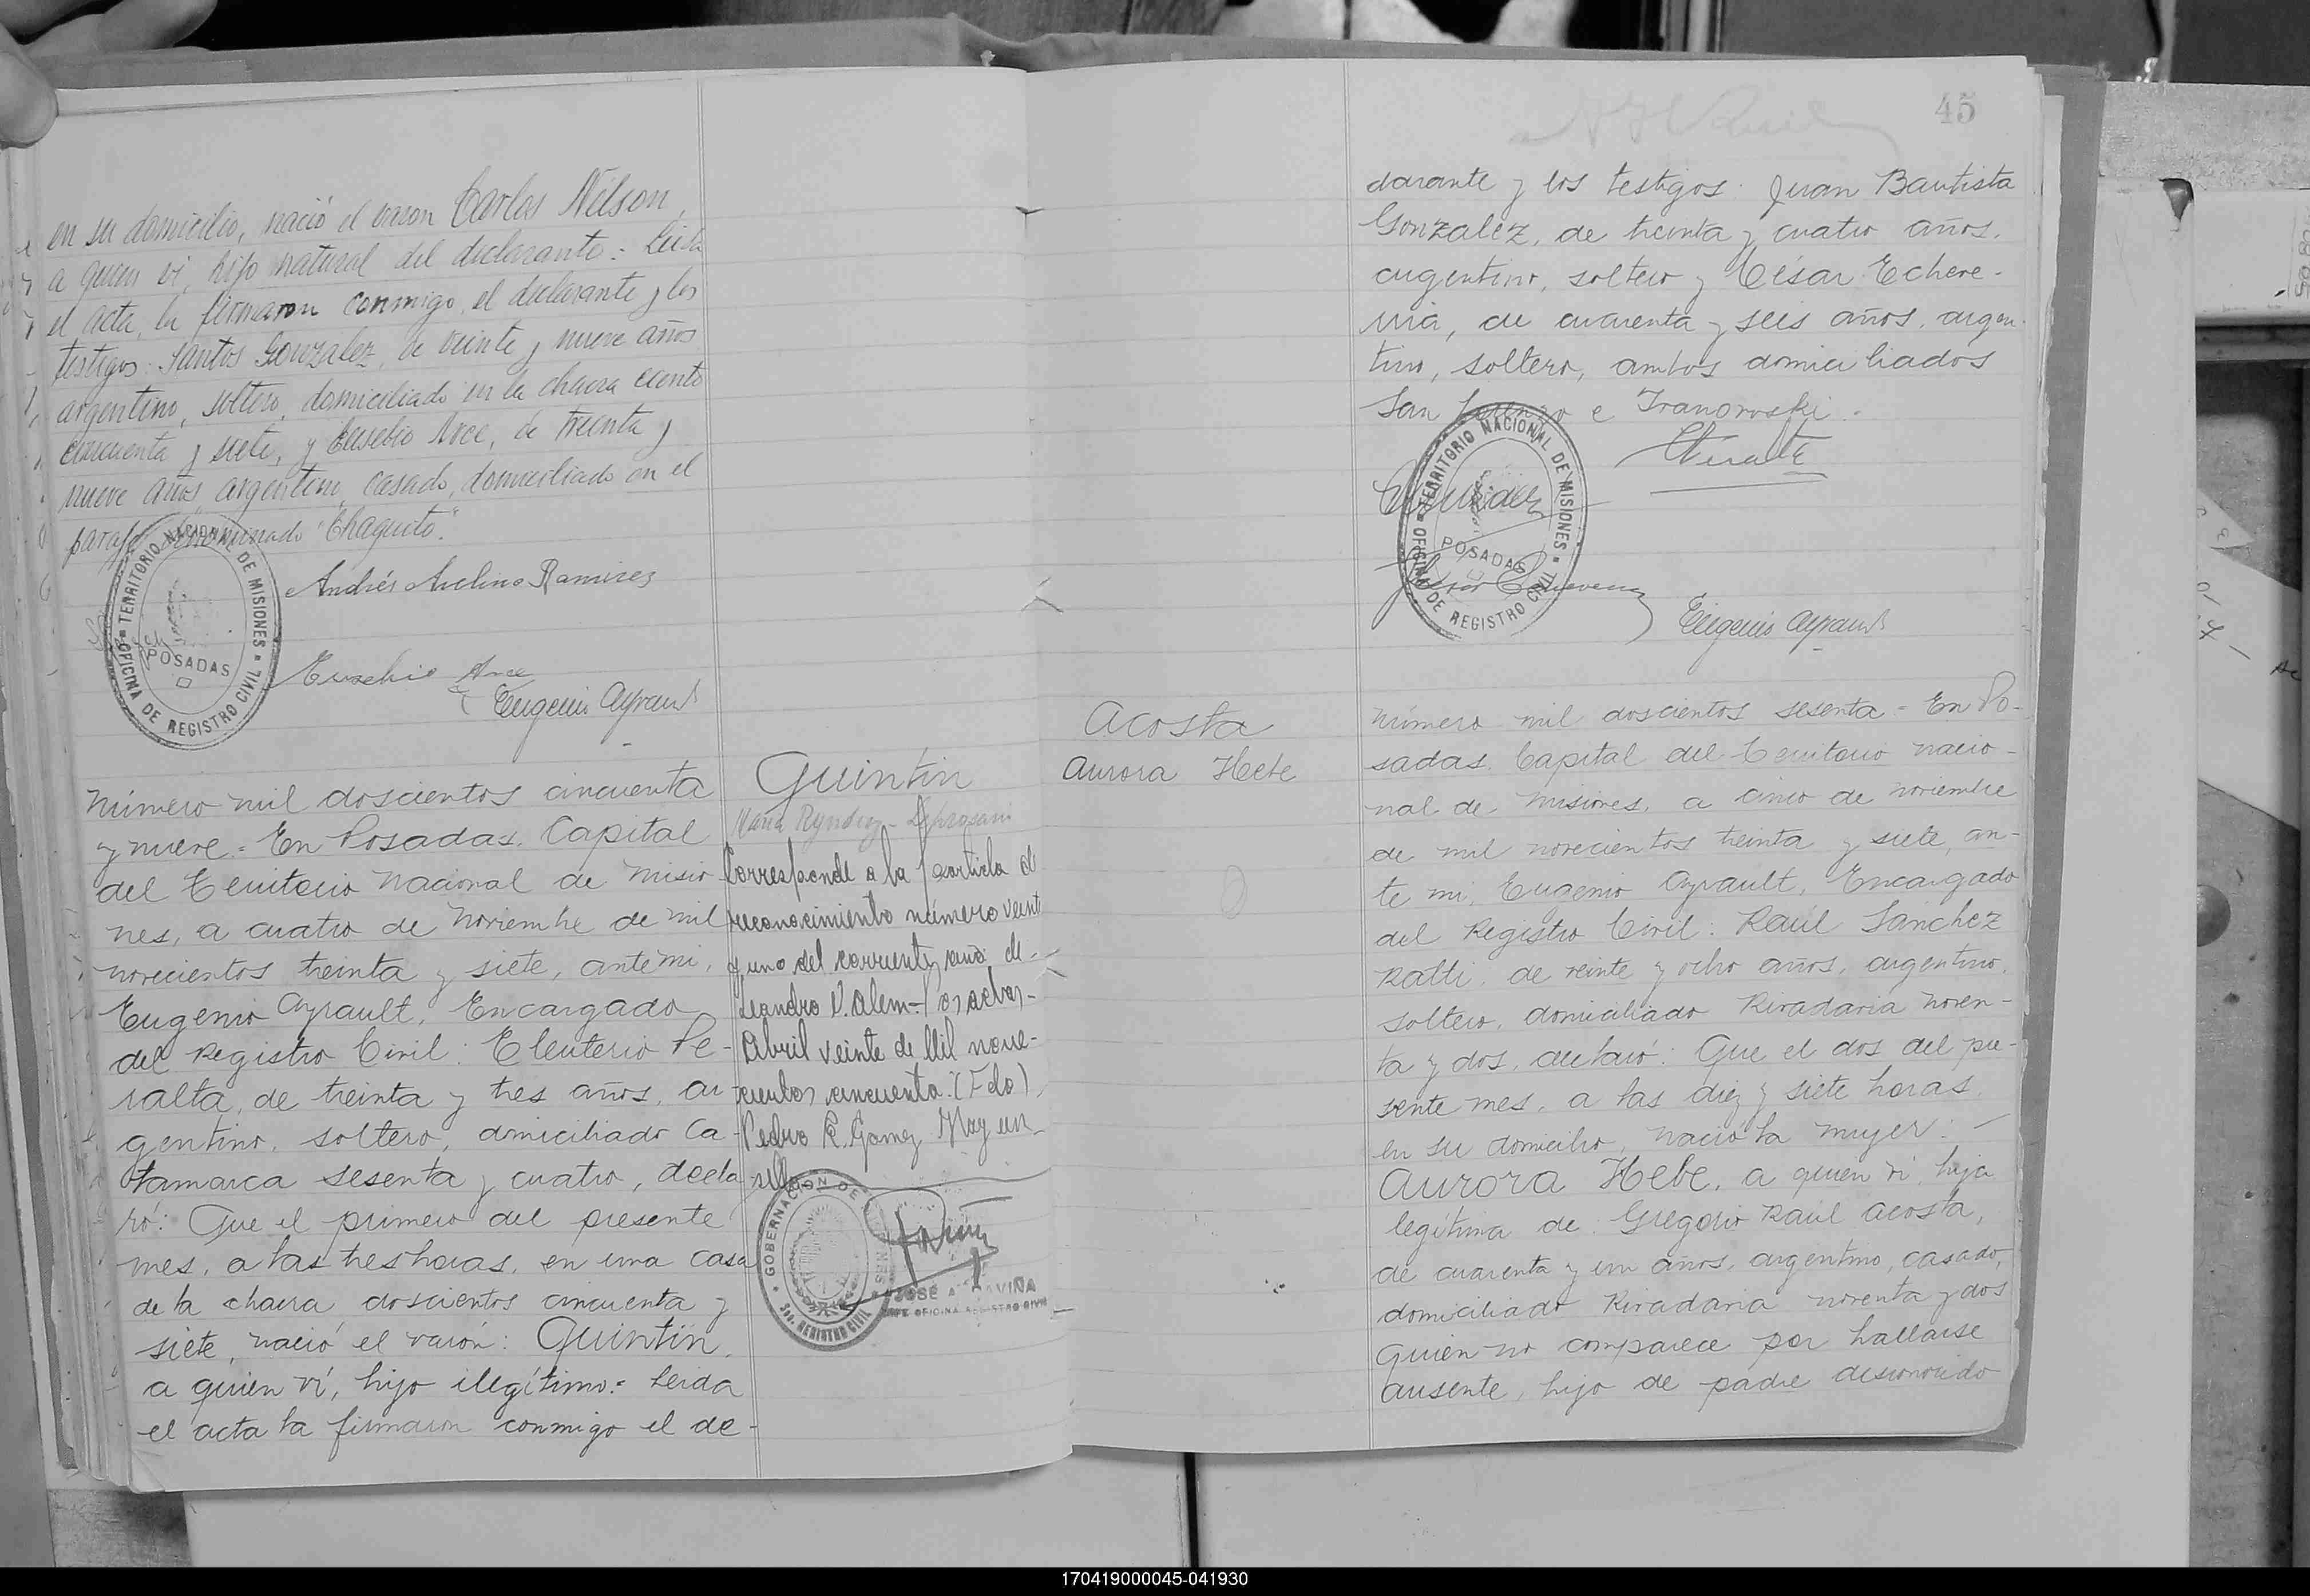 en su domicilio, nació el varon Carlos Nelson,
a quien vi, hijo natural del declarante.= Leida
el acta, la firmaron conmigo, el declarante y los
testigos: Santos Gonzalez, de veinte y nueve años
argentino, soltero, domiciliado en la chacra ciento
cincuenta y siete, y Eusebio Arce, de treinta y
nueve años, argentino, casado, domiciliado en el
paraje denominado "Chaquito."
TERRITORIO NACIONAL DE MISIONES
OFICINA DE REGISTRO CIVIL
POSADAS
Andrés Avelino Ramirez
Eusebio Arce
Eugenio Ayrault
número mil doscientos cincuenta
y nueve = En Posadas. Capital
del Territorio Nacional de Misio-
nes, a cuatro de Noviembre de mil
novecientos treinta y siete, ante mi,
Eugenio Ayrault, Encargado
del Registro Civil: Eleuterio Pe-
ralta, de treinta y tres años, ar-
gentino, soltero, domiciliado Ca-
tamarca sesenta y cuatro, decla-
ró: Que el primero del presente
mes, a las tres horas, en una casa
de la chacra doscientos cincuenta y
siete, nació el varón: Quintin,
a quien vi, hijo ilegítimo.= Leida
el acta la firmaron conmigo el de-
Quintin
Corresponde a la partida de
reconocimiento número veinti
y uno del corriente año de-
Leandro N. Alem.- Posadas-
Abril veinte de Mil nove-
cientos cincuenta. (Fdo)
Pedro R. Gomez Hay un
sello
GOBERNACION DE MISIONES
Sec. REGISTRO CIVIL
JOSE A. DAVIÑA
JEFE OFICINA REGISTRO CIVIL
45
clarante y los testigos: Juan Bautista
Gonzalez, de treinta y cuatro años,
argentino, soltero y César Echeve-
rria, de cuarenta y seis años, argen-
tino, soltero, ambos domiciliados
San Lorenzo e Ivanowski.
TERRITORIO NACIONAL DE MISIONES
OFICINA DE REGISTRO CIVIL
POSADAS
Eugenio Ayrault
Acosta
Aurora Hebe
número mil doscientos sesenta = En Po-
sadas. Capital del Territorio nacio-
nal de Misiones, a cinco de noviembre
de mil novecientos treinta y siete, an-
te mi, Eugenio Ayrault, Encargado
del Registro Civil: Raúl Sánchez
Ratti, de veinte y ocho años, argentino,
soltero, domiciliado Rivadavia noven-
ta y dos, declaró: Que el dos del pre-
sente mes, a las diez y siete horas,
en su domicilio, nació la mujer:
Aurora Hebe, a quien vi, hija
legítima de Gregorio Raúl Acosta,
de cuarenta y un años, argentino, casado,
domiciliado Rivadavia noventa y dos
quien no comparece por hallarse
ausente, hijo de padre desconocido
170419000045-041930